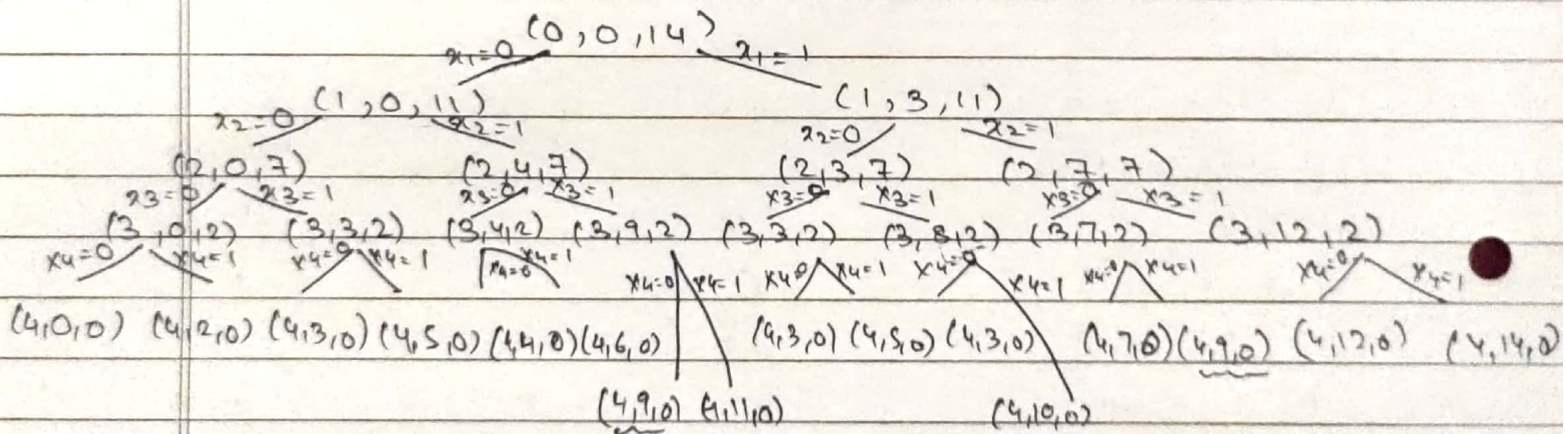 (0,0,14)
x1=0 x1=1
(1,0,11) (1,3,11)
x2=0 x2=1 x2=0 x2=1
(2,0,7) (2,4,7) (2,3,7) (2,7,7)
x3=0 x3=1 x3=0 x3=1 x3=0 x3=1 x3=0 x3=1
(3,0,2) (3,3,2) (3,4,2) (3,9,2) (3,3,2) (3,8,2) (3,7,2) (3,12,2)
x4=0 x4=1 x4=0 x4=1 x4=0 x4=1 x4=0 x4=1 x4=0 x4=1 x4=0 x4=1 x4=0 x4=1 x4=0 x4=1
(4,0,0) (4,2,0) (4,3,0) (4,5,0) (4,4,0) (4,6,0) (4,3,0) (4,5,0) (4,3,0) (4,7,0) (4,9,0) (4,12,0) (4,14,0)
(4,9,0) (4,11,0) (4,10,0)